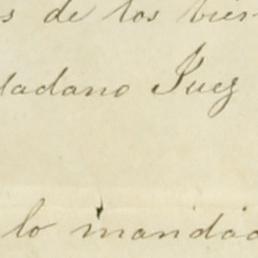 s de los bien
dadano Juez
lo mandad